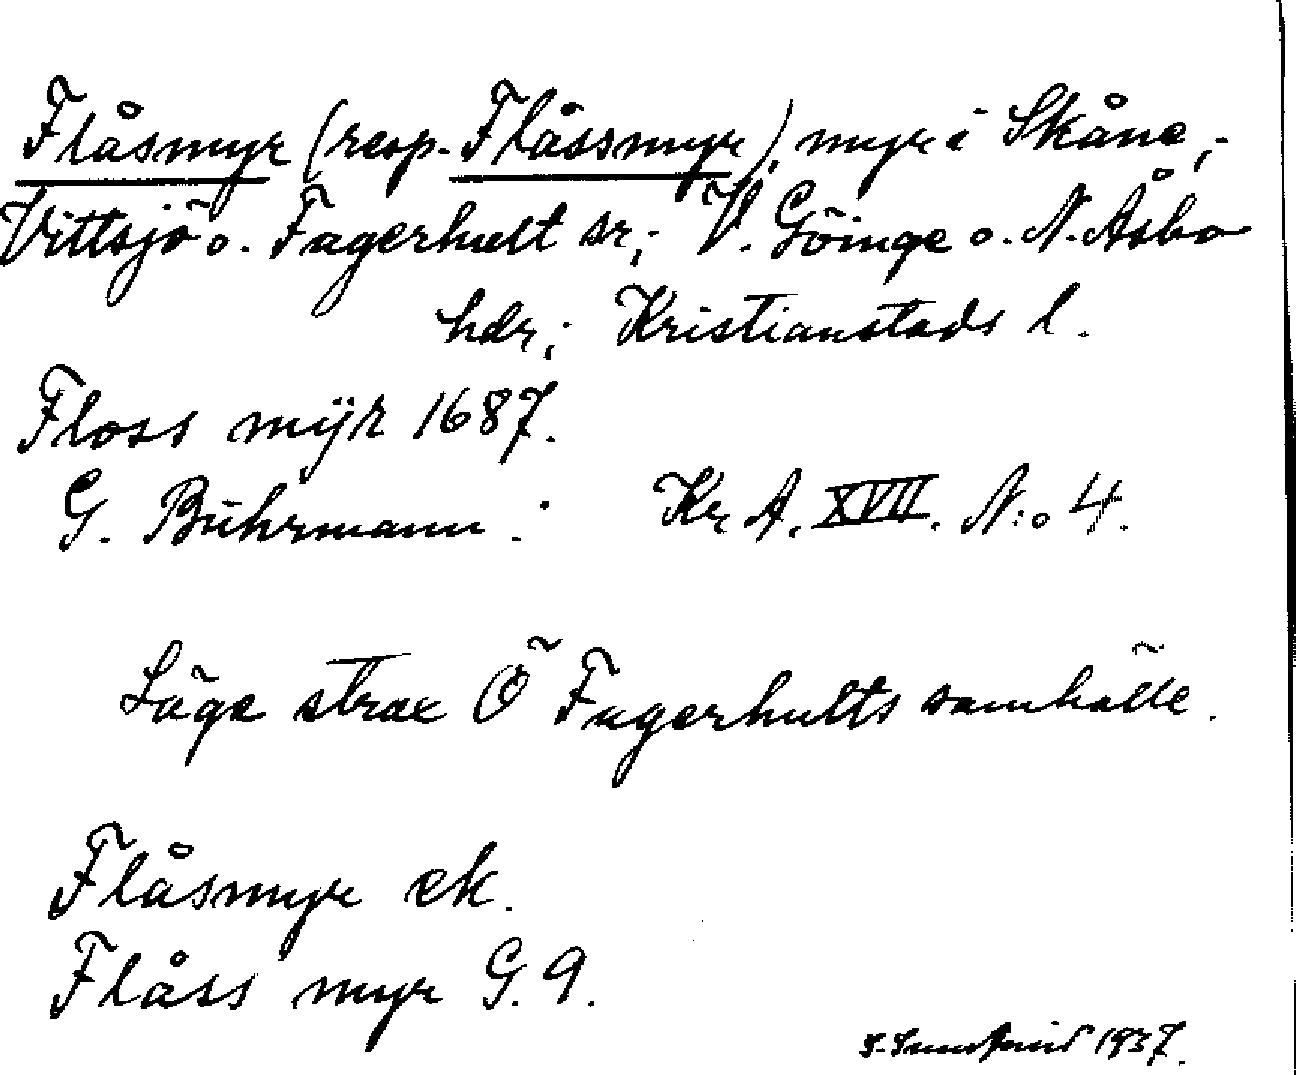 Flåsmyr (resp. Flåssmyr), myr i Skåne,
Vittsjö o. Fagerhult sr; V. Göinge o. N. Åsbo
hdr; Kristianstads l.
Floss mÿr 1687.
G. Buhrmann : Kr. A. XVII. N:o 4.
Läge strax Ö Fagerhults samhälle.
Flåsmyr ek.
Flåss myr G. 9.
1937.